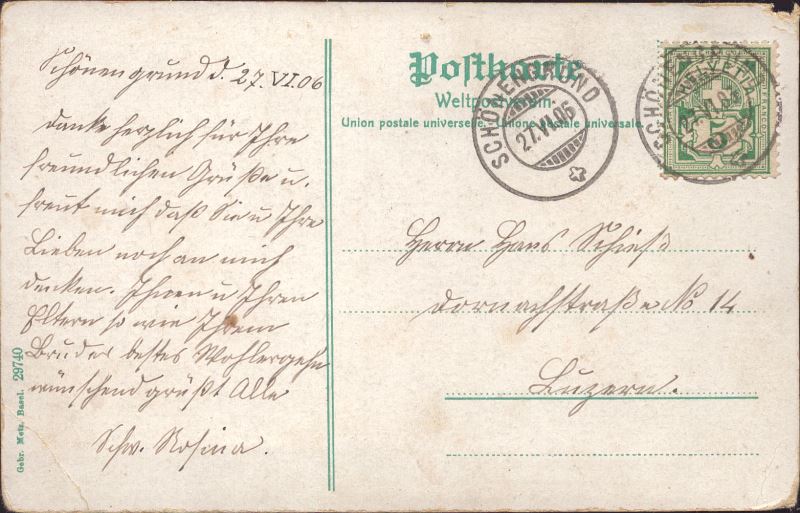 Schönengrund d. 27. VI. 06
Danke herzlich für Ihre
freundlichen Grüße u.
freut mich daß Sie u Ihre
Lieben noch an mich
denken. Ihnen u Ihren
Eltern so wie Ihrem
Bruder bestes Wohlergehn
wünschend grüßt Alle
Schw. Rosina.
Gebr. Metz, Basel. 29740
Postkarte
Weltpostverein
Union postale universelle. Unione postale universale.
SCHÖNENGRUND
27.VI.06
HELVETIA
FRANCO
Herrn Hans Schieß
Dornachstraße No 14
Luzern.